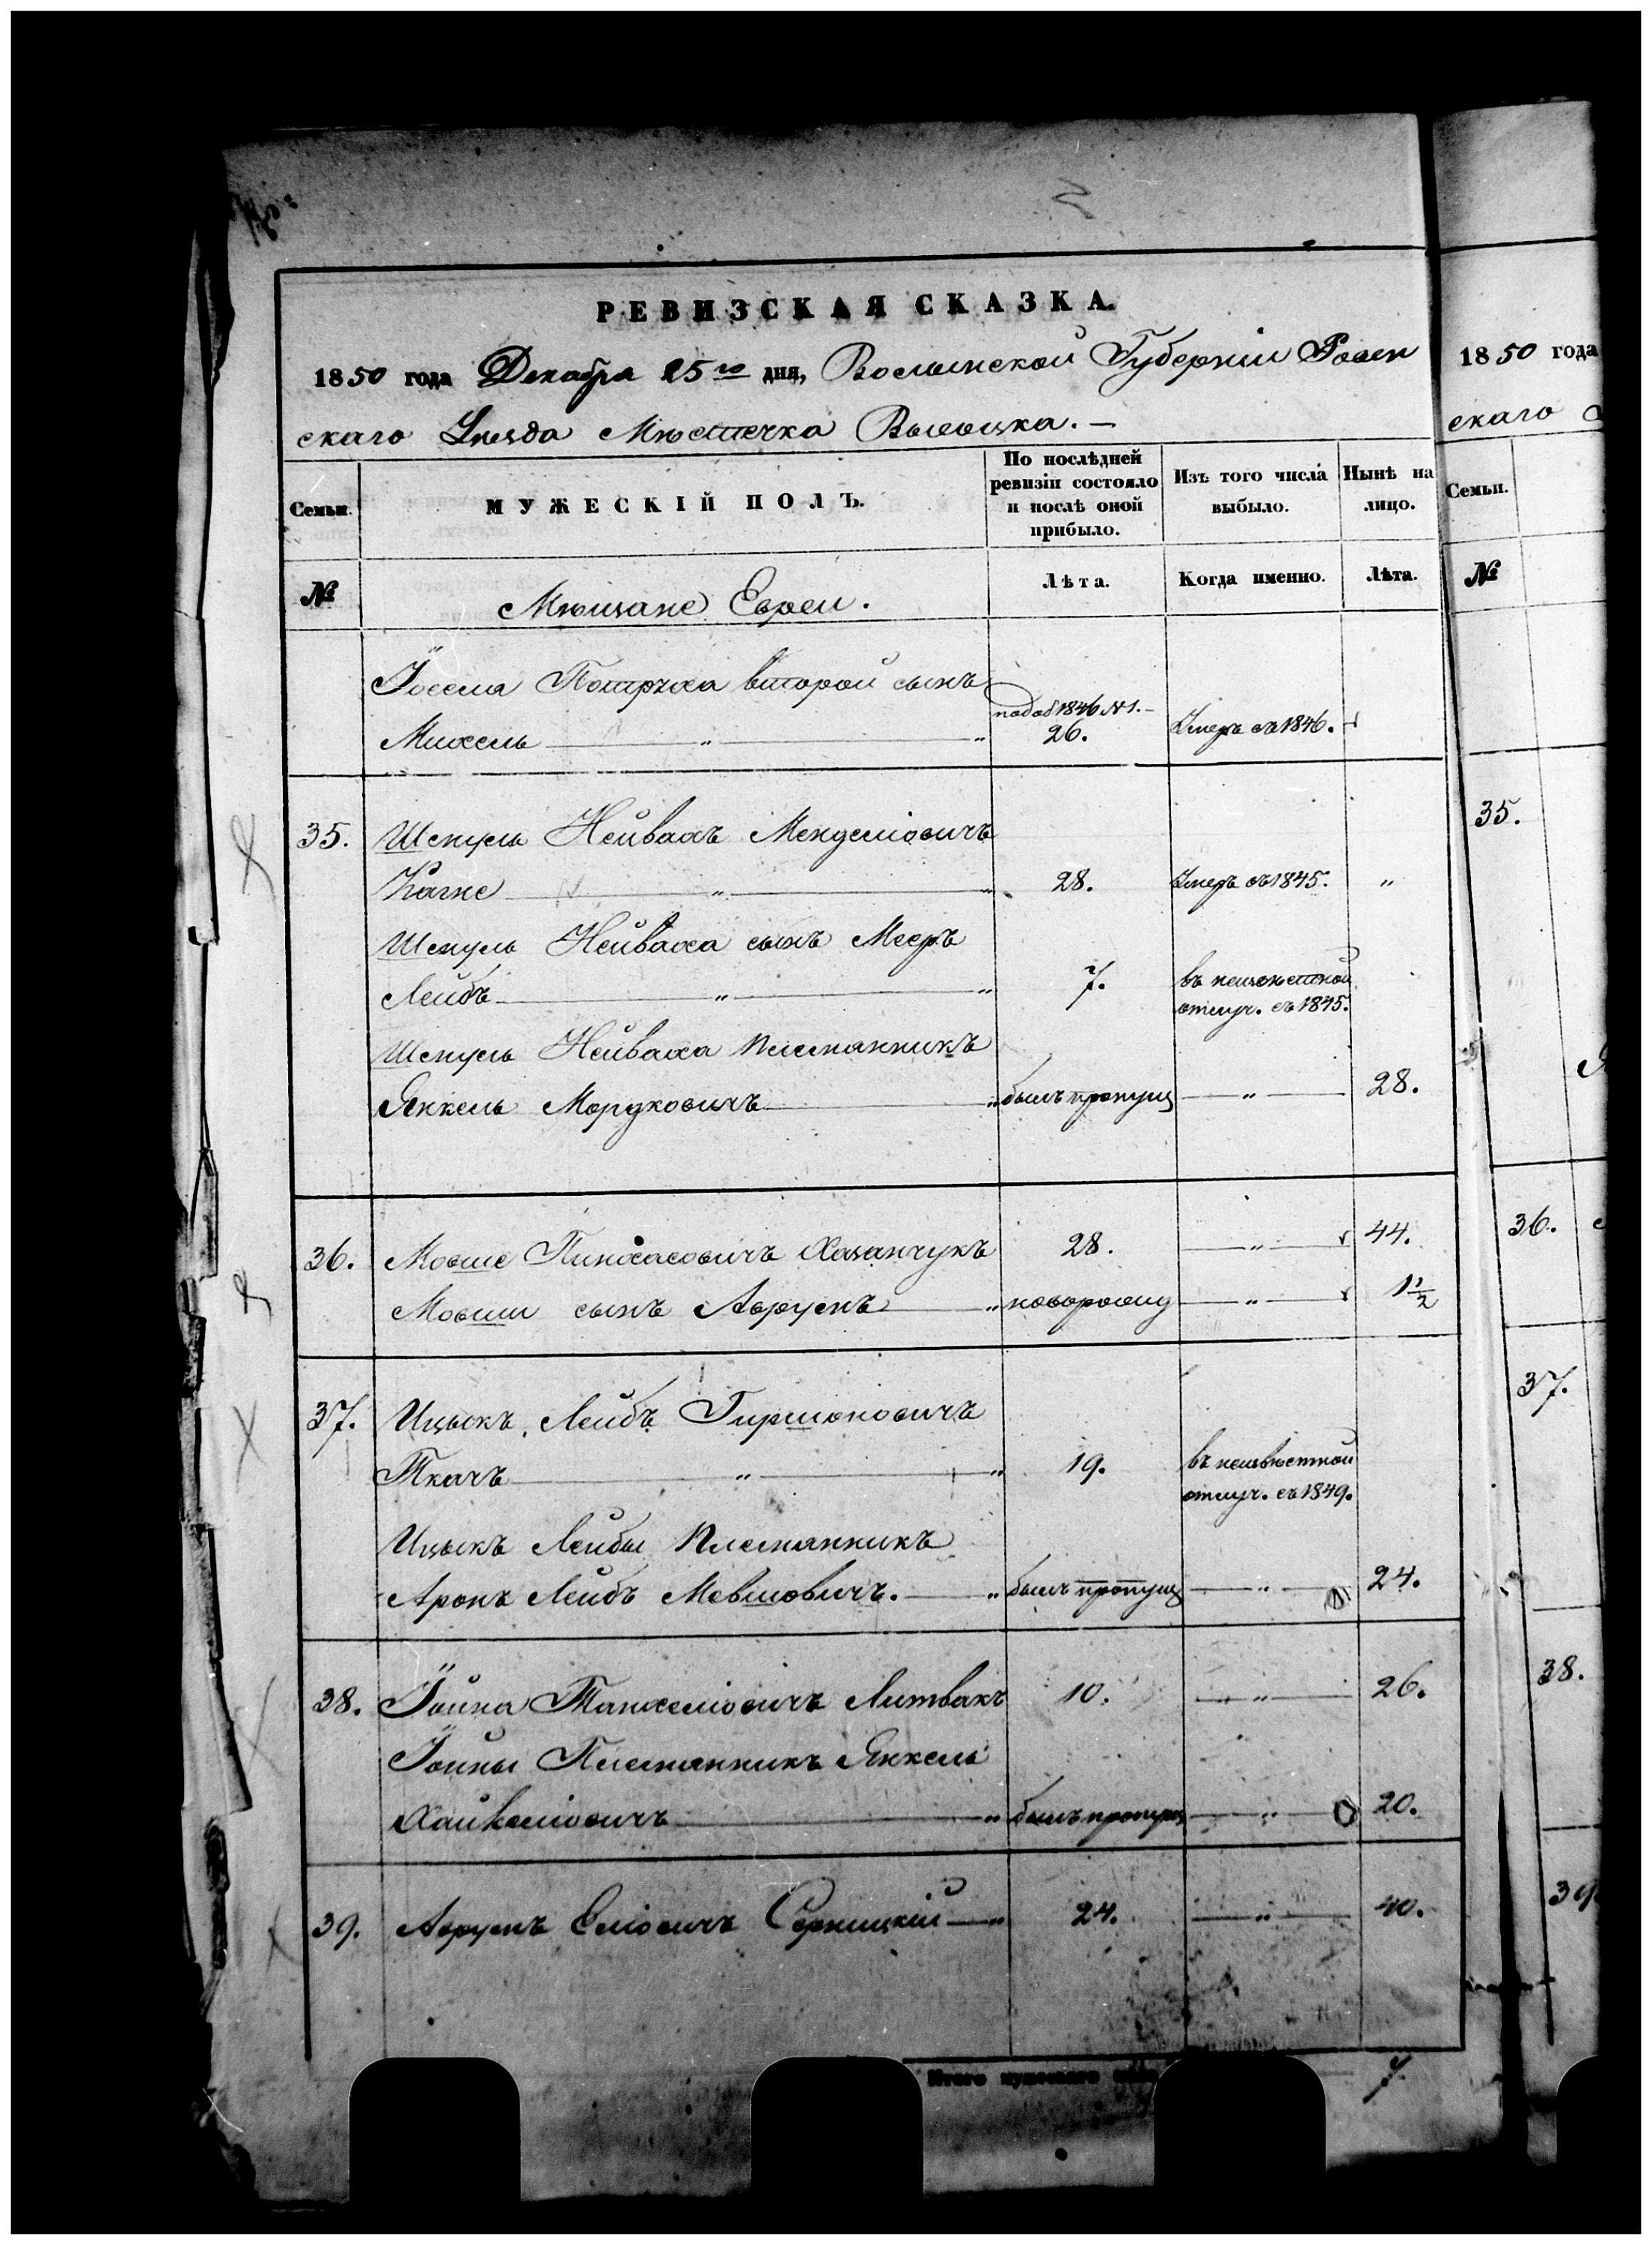 РЕВИЗСКАЯ СКАЗКА.
1850 года Декабря 25го дня, Волынской Губерніи Ровен
скаго Уѣзда Мѣстечка Высоцка. —
Семьи.
МУЖЕСКІЙ ПОЛЪ.
По послѣдней ревизіи состояло и послѣ оной прибыло.
Изъ того числа выбыло.
Нынѣ на лицо.
№
Мѣщане Евреи.
Лѣта.
Когда именно.
Лѣта.
Іоселя второй сынъ
1846 №1. —
Михель — " — " 26. Умеръ въ 1846.
35. Шепсель Нейвахъ Менделіовичъ
— " — " 28. Умеръ въ 1845. "
Нейваха сынъ Мееръ
Лейбъ — " — " 7. въ неизвѣстной
отлуч. съ 1845.
Нейваха племянникъ
Янкель Мордковичъ — " былъ пропущ — " — 28.
36. Мовше Пинхасовичъ Хазанчукъ 28. — " — 44.
Мовши сынъ Аврумъ — " новорожд — " — 1 1/2
37. Ицыкъ Лейбъ Гиршоновичъ
Ткачъ — " — " 19. въ неизвѣстной
отлуч. съ 1849.
Ицыкъ Лейбы племянникъ
Аронъ Лейбъ Мевшовичъ. — " былъ пропущ — " — 24.
38. Іойна Танхеліовичъ Литвакъ 10. — " — 26.
Іойны Племянникъ Янкель
Хайкеліовичъ — " былъ пропущ — " — 20.
39. Аврумъ Еліовичъ Серницкій — " 24. — " — 40.
Итого мужескаго
1850 года
скаго
Семьи.
№
35.
36.
37.
38.
39